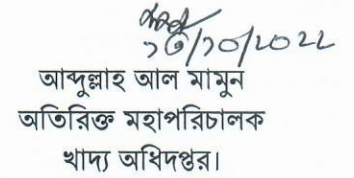 ১৩/১০/২০২২
আব্দুল্লাহ আল মামুন
অতিরিক্ত মহাপরিচালক
খাদ্য অধিদপ্তর।